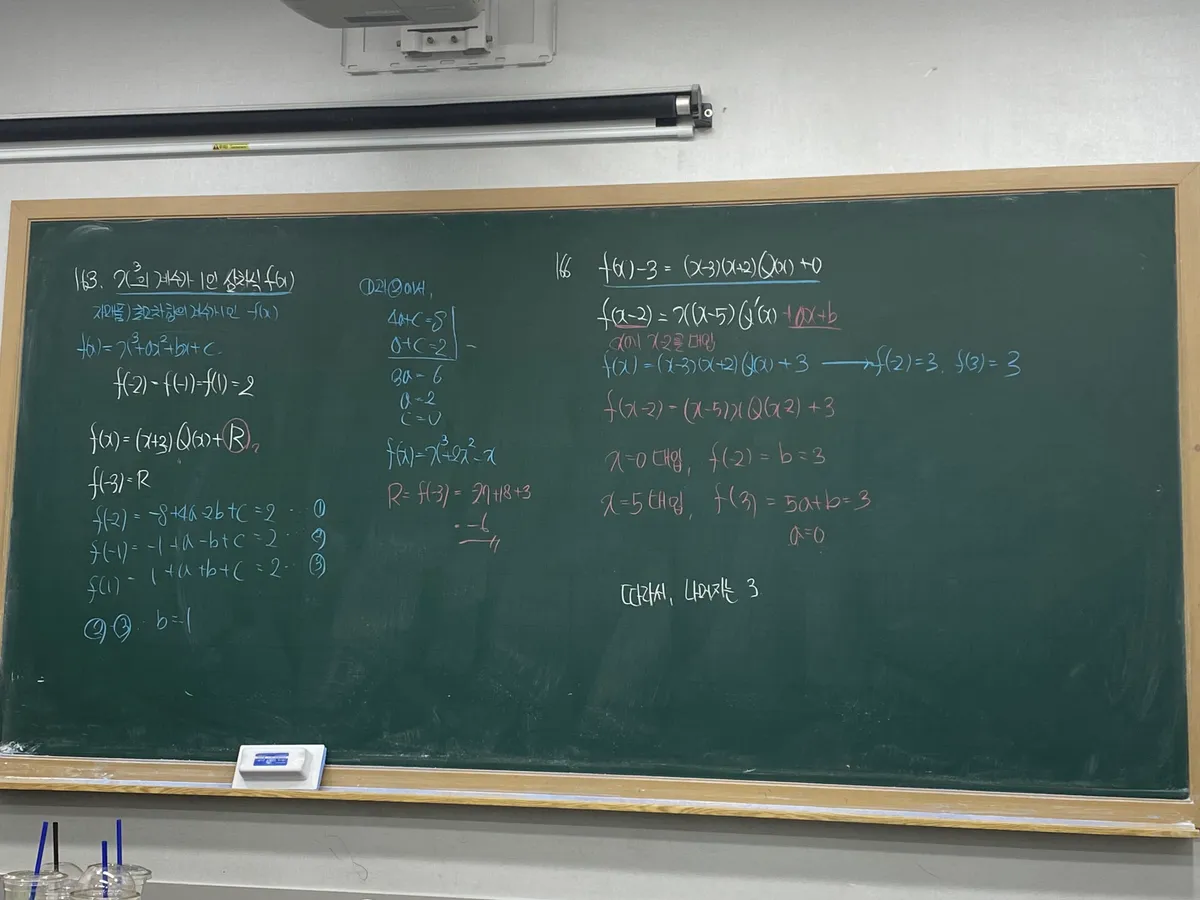 163. x³의 계수가 1인 삼차식 f(x)
최고차항의 계수가 1인 f(x)
f(x)=x³+ax²+bx+c.
f(-2)=f(-1)=f(1)=2
f(x)=(x+3)Q(x)+R
f(-3)=R
f(-2)=-8+4a-2b+c=2 … ①
f(-1)=-1+a-b+c=2 … ②
f(1)=1+a+b+c=2 … ③
②-③ … b=-1
①과 ②에서,
4a+c=8
a+c=2 -
3a=6
a=2
c=0
f(x)=x³+2x²-x
R=f(-3)=-27+18+3
=-6
166 f(x)-3=(x-3)(x+2)Q(x)+0
f(x-2)=x(x-5)Q'(x)+ax+b
x에 x-2를 대입
f(x)=(x-3)(x+2)Q(x)+3 → f(-2)=3. f(3)=3
f(x-2)=(x-5)x Q(x-2)+3
x=0 대입, f(-2)=b=3
x=5 대입, f(3)=5a+b=3
a=0
따라서, 나머지는 3